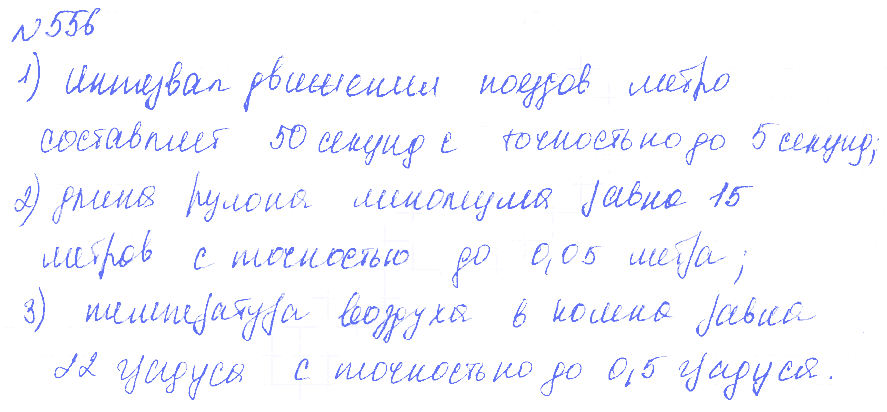 № 556
1) Интервал движения поездов метро
составляет 50 секунд с точностью до 5 секунд;
2) длина рулона линолеума равна 15
метров с точностью до 0,05 метра;
3) температура воздуха в комна равна
22 градуса с точностью до 0,5 градуса.